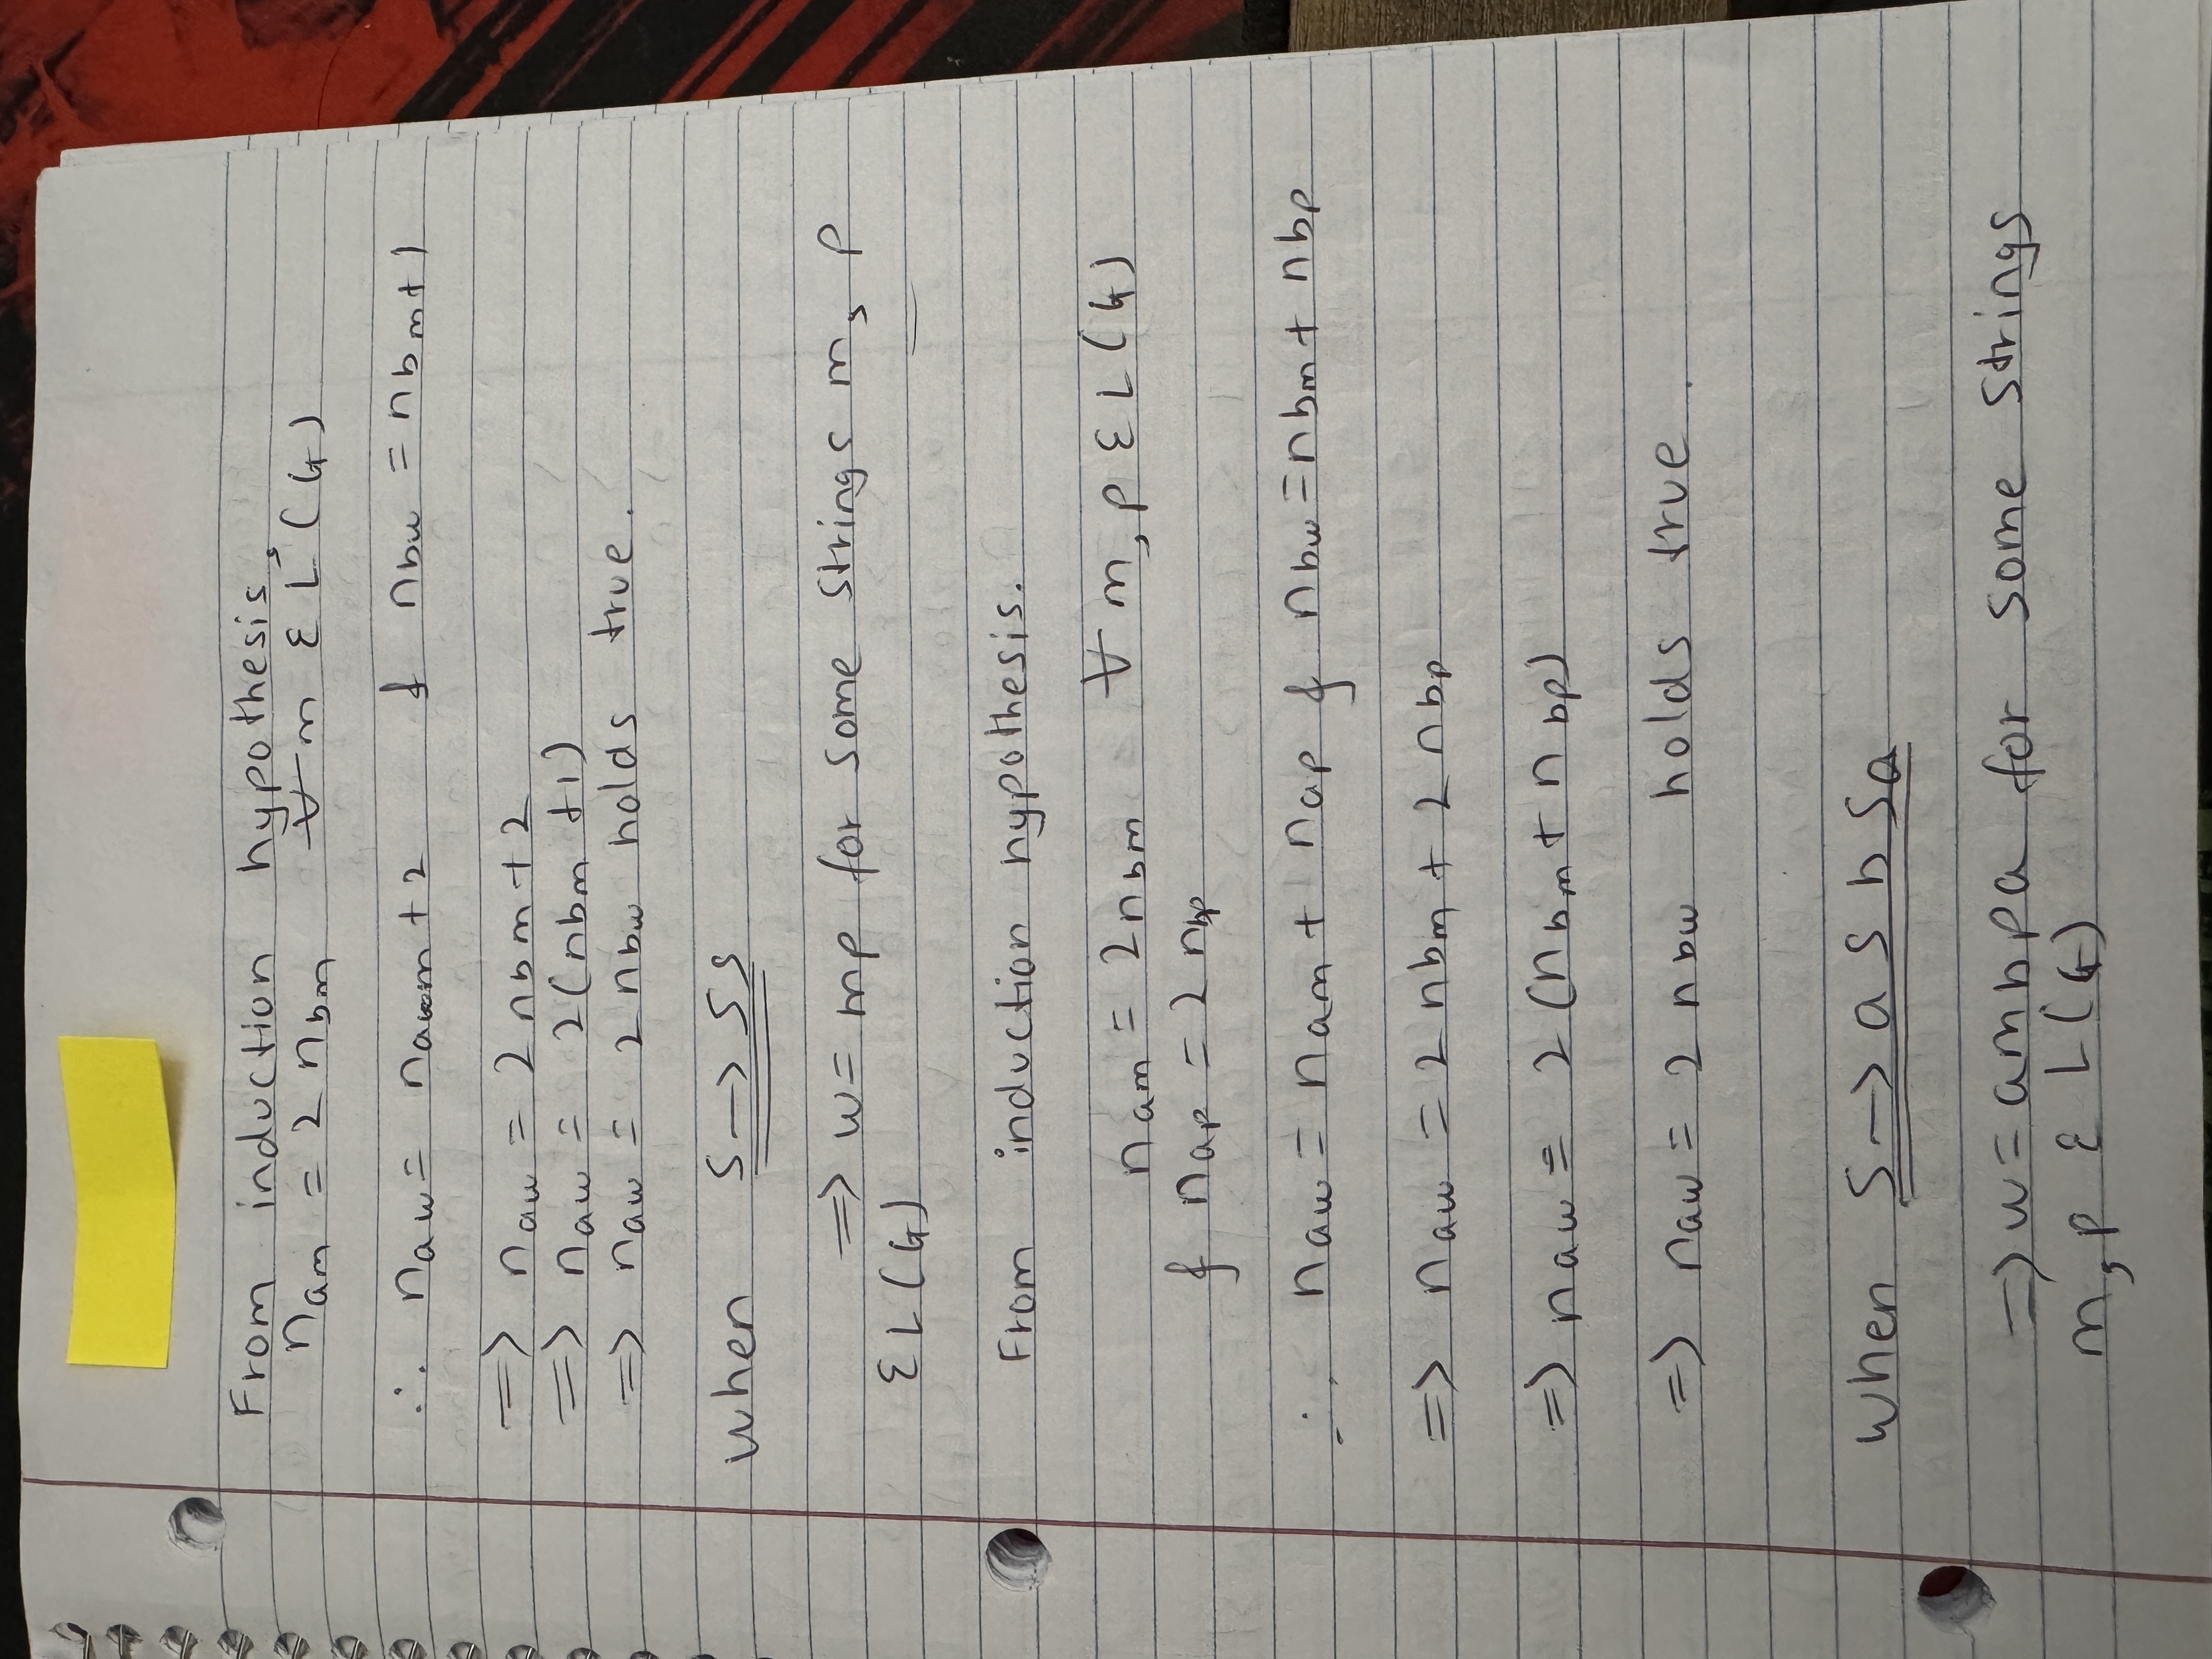 From induction hypothesis,
nam = 2 nbm ∀ m ε L(G)
∴ naw = nam + 2 & nbw = nbm + 1
=> naw = 2 nbm + 2
=> naw = 2(nbm + 1)
=> naw = 2 nbw holds true.
when S -> SS
=> w = mp for some strings m, p
ε L(G)
From induction hypothesis.
nam = 2nbm ∀ m, p ε L(G)
& nap = 2 nbp
∴ naw = nam + nap & nbw = nbm + nbp
=> naw = 2 nbm + 2 nbp
=> naw = 2 (nbm + nbp)
=> naw = 2 nbw holds true.
when S -> a S b Sa
=> w = ambpa for some strings
m, p ε L(G)